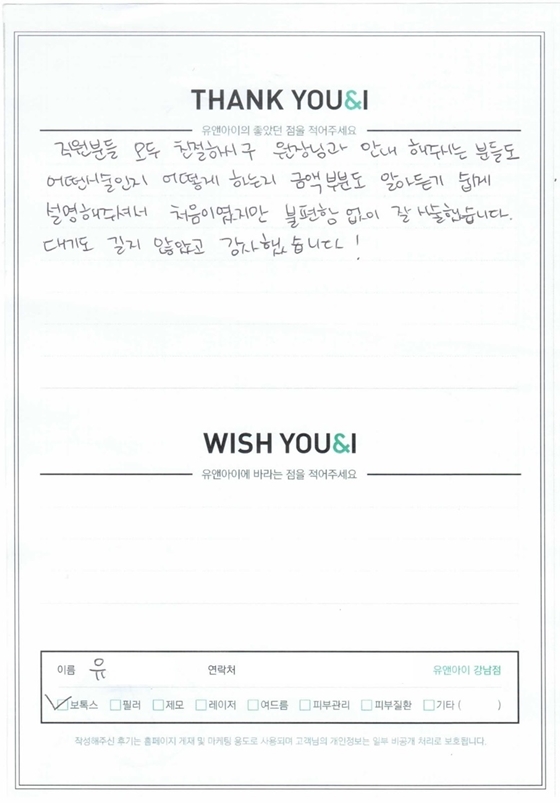 THANK YOU&I
유앤아이의 좋았던 점을 적어주세요
직원분들 모두 친절하시구 원장님과 안내 해주시는 분들도
어떤시술인지 어떻게 하는지 금액부분도 알아듣기 쉽게
설명해주셔서 처음이였지만 불편함 없이 잘 시술했습니다.
대기도 길지 않았고 감사했습니다!
WISH YOU&I
유앤아이에 바라는 점을 적어주세요
이름 유 연락처 유앤아이 강남점
보톡스 필러 제모 레이저 여드름 피부관리 피부질환 기타 ( )
작성해주신 후기는 홈페이지 게재 및 마케팅 용도로 사용되며 고객님의 개인정보는 일부 비공개 처리로 보호됩니다.